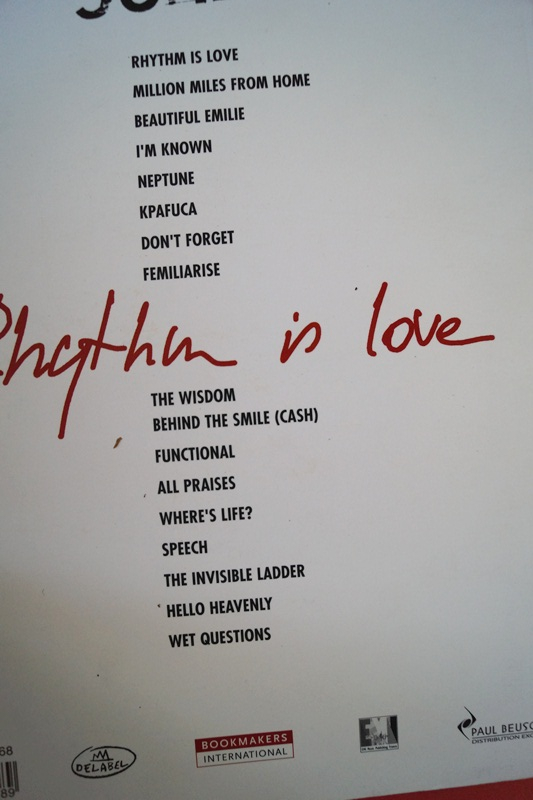 RHYTHM IS LOVE
MILLION MILES FROM HOME
BEAUTIFUL EMILIE
I'M KNOWN
NEPTUNE
KPAFUCA
DON'T FORGET
FEMILIARISE
Rhythm is love
THE WISDOM
BEHIND THE SMILE (CASH)
FUNCTIONAL
ALL PRAISES
WHERE'S LIFE?
SPEECH
THE INVISIBLE LADDER
HELLO HEAVENLY
WET QUESTIONS
68
89
DELABEL
BOOKMAKERS
INTERNATIONAL
EMI
PAUL BEUSC
DISTRIBUTION EXC